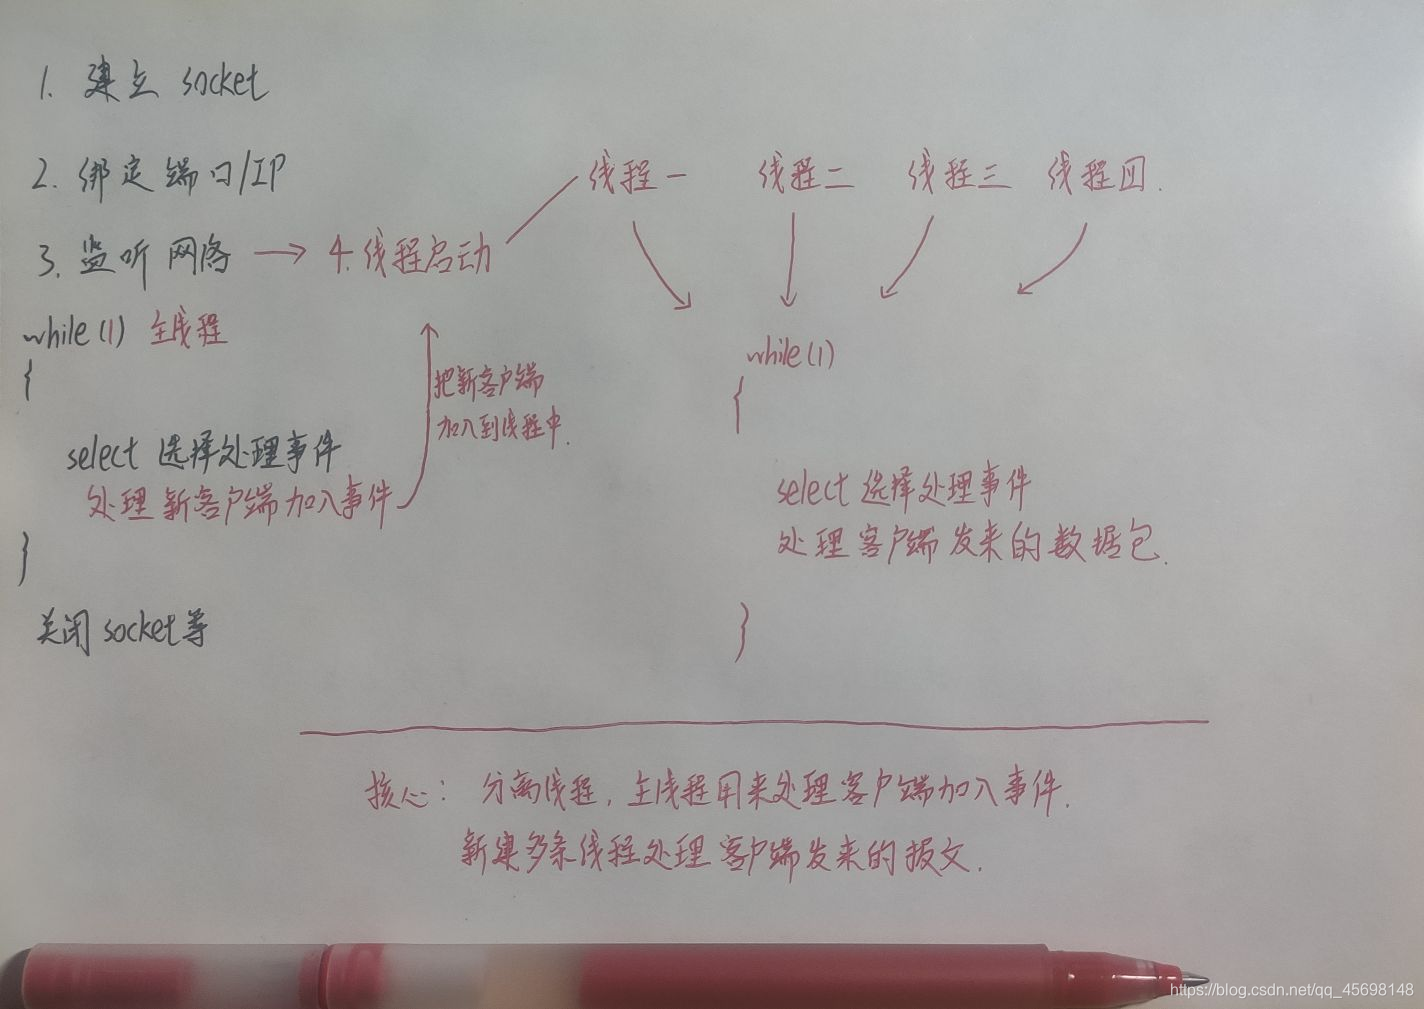 1. 建立 socket
2. 绑定端口/IP
3. 监听网络 → 4. 线程启动
线程一 线程二 线程三 线程四.
while(1) 主线程
{
select 选择处理事件
处理新客户端加入事件
}
关闭 socket等
把新客户端
加入到线程中.
while(1)
{
select 选择处理事件
处理客户端发来的数据包.
}
核心: 分离线程, 主线程用来处理客户端加入事件.
新建多条线程处理客户端发来的报文.
https://blog.csdn.net/qq_45698148